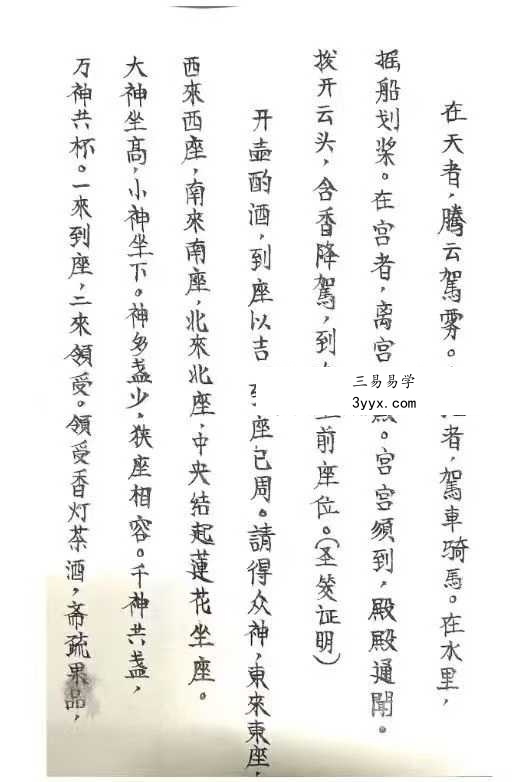 在天者，騰云駕雾。者，駕車骑馬。在水里，
摇船划桨。在宫者，离宫。宫宫須到，殿殿通聞。
拨开云头，含香降駕，到前座位。（圣筊证明）
开壶酌酒，到座以吉座已周。請得众神，東來東座，
西來西座，南來南座，北來北座，中央结起蓮花坐座。
大神坐高，小神坐下。神多盏少，狭座相容。千神共盏，
万神共杯。一來到座，二來領受。領受香灯茶酒，斋疏果品，
三易易学
3yyx.com